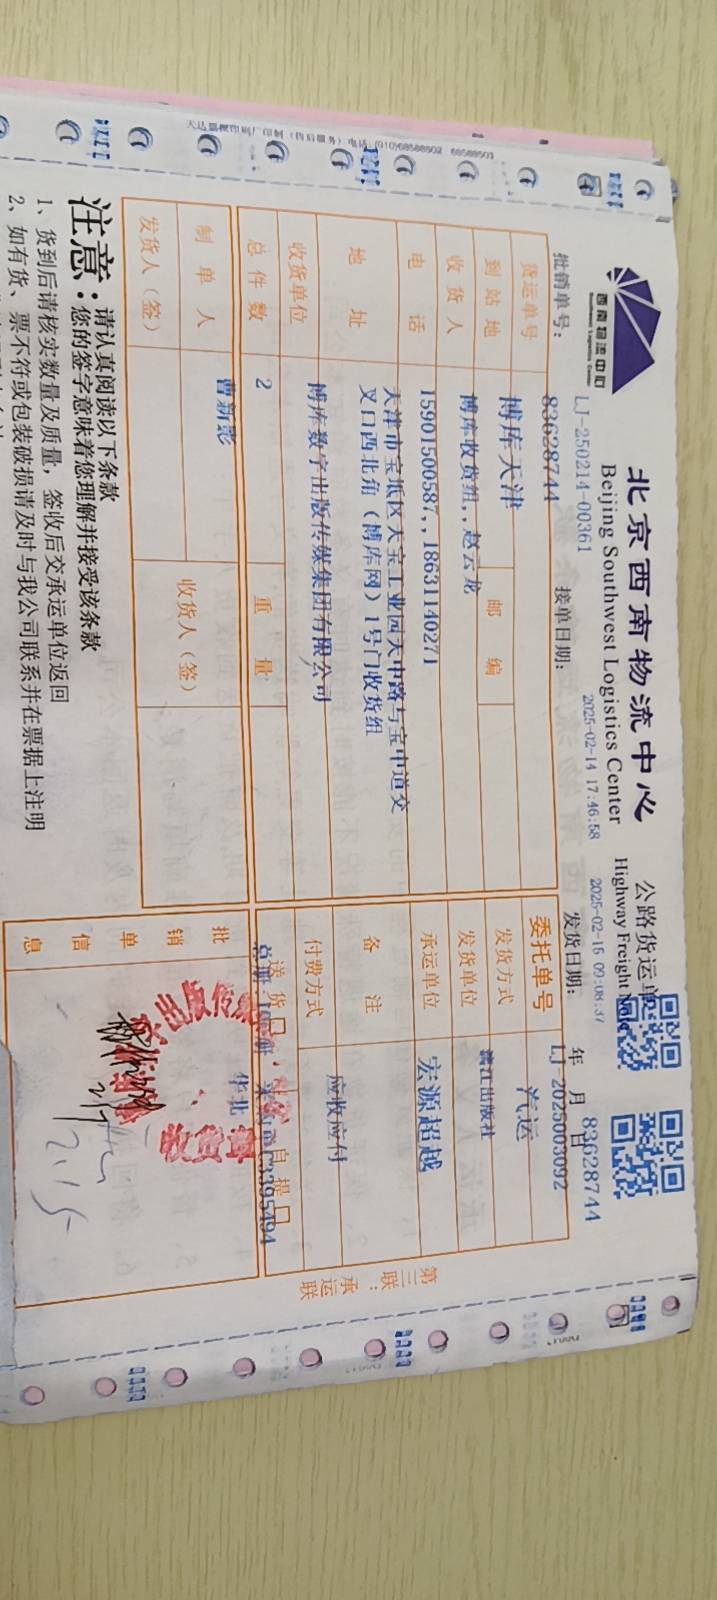 天达嘉概印刷厂印制（售后服务）电话：(010)68588502 68588503
西南物流中心
Southwest Logistics Center
北京西南物流中心 公路货运单
Beijing Southwest Logistics Center Highway Freight Note
LJ-250214-00361 2025-02-14 17:46:58 2025-02-15 09:08:37 83628744
批销单号： 接单日期： 发货日期： 年 月 日
货运单号 83628744 委托单号 LJ-2025003092
到站地 博库天津 邮编 发货方式 汽运
收货人 博库收货组,,赵云龙 发货单位 漓江出版社
电话 15901500587,,18631140271 承运单位 宏源超越
地址 天津市宝坻区天宝工业园天中路与宝中道交
叉口西北角（博库网）1号门收货组 备注
收货单位 博库数字出版传媒集团有限公司 付费方式 应收应付
总件数 2 重量 送货 自提
华北
制单人 曹新影 收货人（签）
发货人（签）
批销单信息
收货章
2.15
第三联：承运联
注意：请认真阅读以下条款
您的签字意味着您理解并接受该条款
1、货到后请核实数量及质量，签收后交承运单位返回
2、如有货、票不符或包装破损请及时与我公司联系并在票据上注明